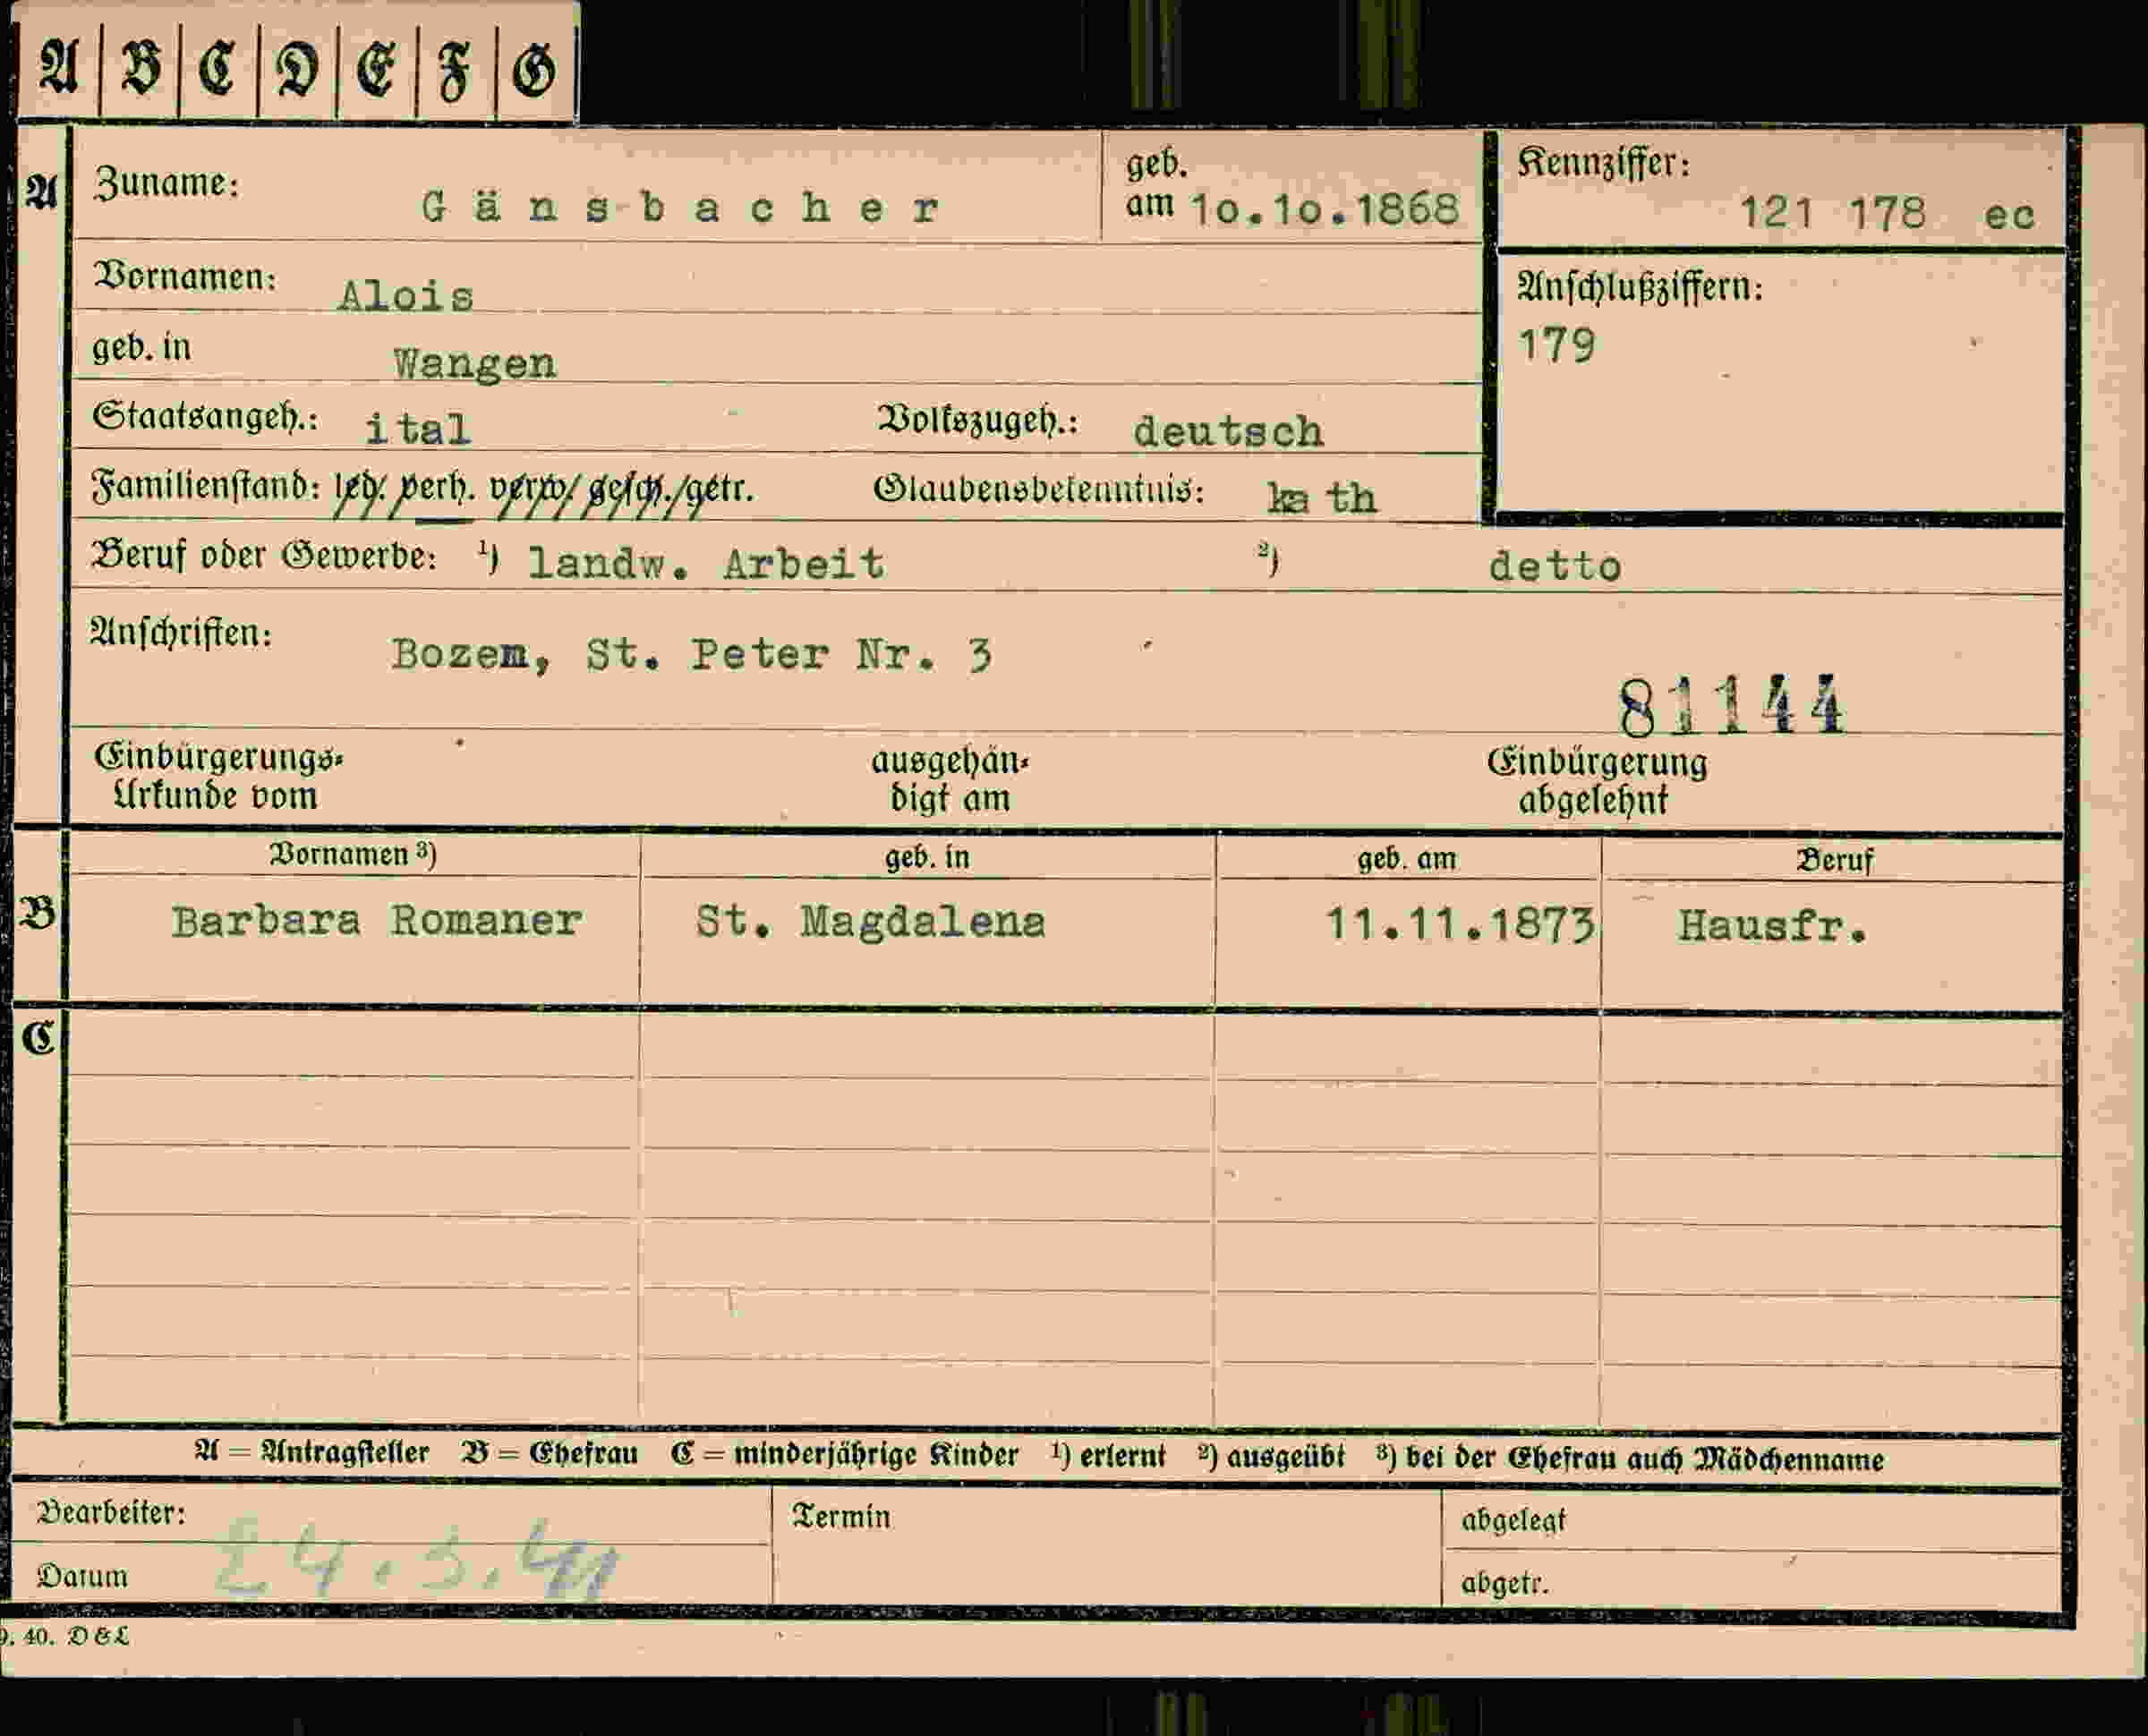 A B C D E F G
A Zuname: Gänsbacher geb. am 10.10.1868 Kennziffer: 121 178 ec
Vornamen: Alois Anschlußziffern:
geb. in Wangen 179
Staatsangeh.: ital Volkszugeh.: deutsch
Familienstand: led. verh. verw. gesch. getr. Glaubensbekenntnis: kath
Beruf oder Gewerbe: 1) landw. Arbeit 2) detto
Anschriften: Bozen, St. Peter Nr. 3
81144
Einbürgerungs- ausgehän- Einbürgerung
Urkunde vom digt am abgelehnt
Vornamen 3) geb. in geb. am Beruf
B Barbara Romaner St. Magdalena 11.11.1873 Hausfr.
C
A = Antragsteller B = Ehefrau C = minderjährige Kinder 1) erlernt 2) ausgeübt 3) bei der Ehefrau auch Mädchenname
Bearbeiter: Termin abgelegt
Datum 24.3.41 abgetr.
9. 40. D & L